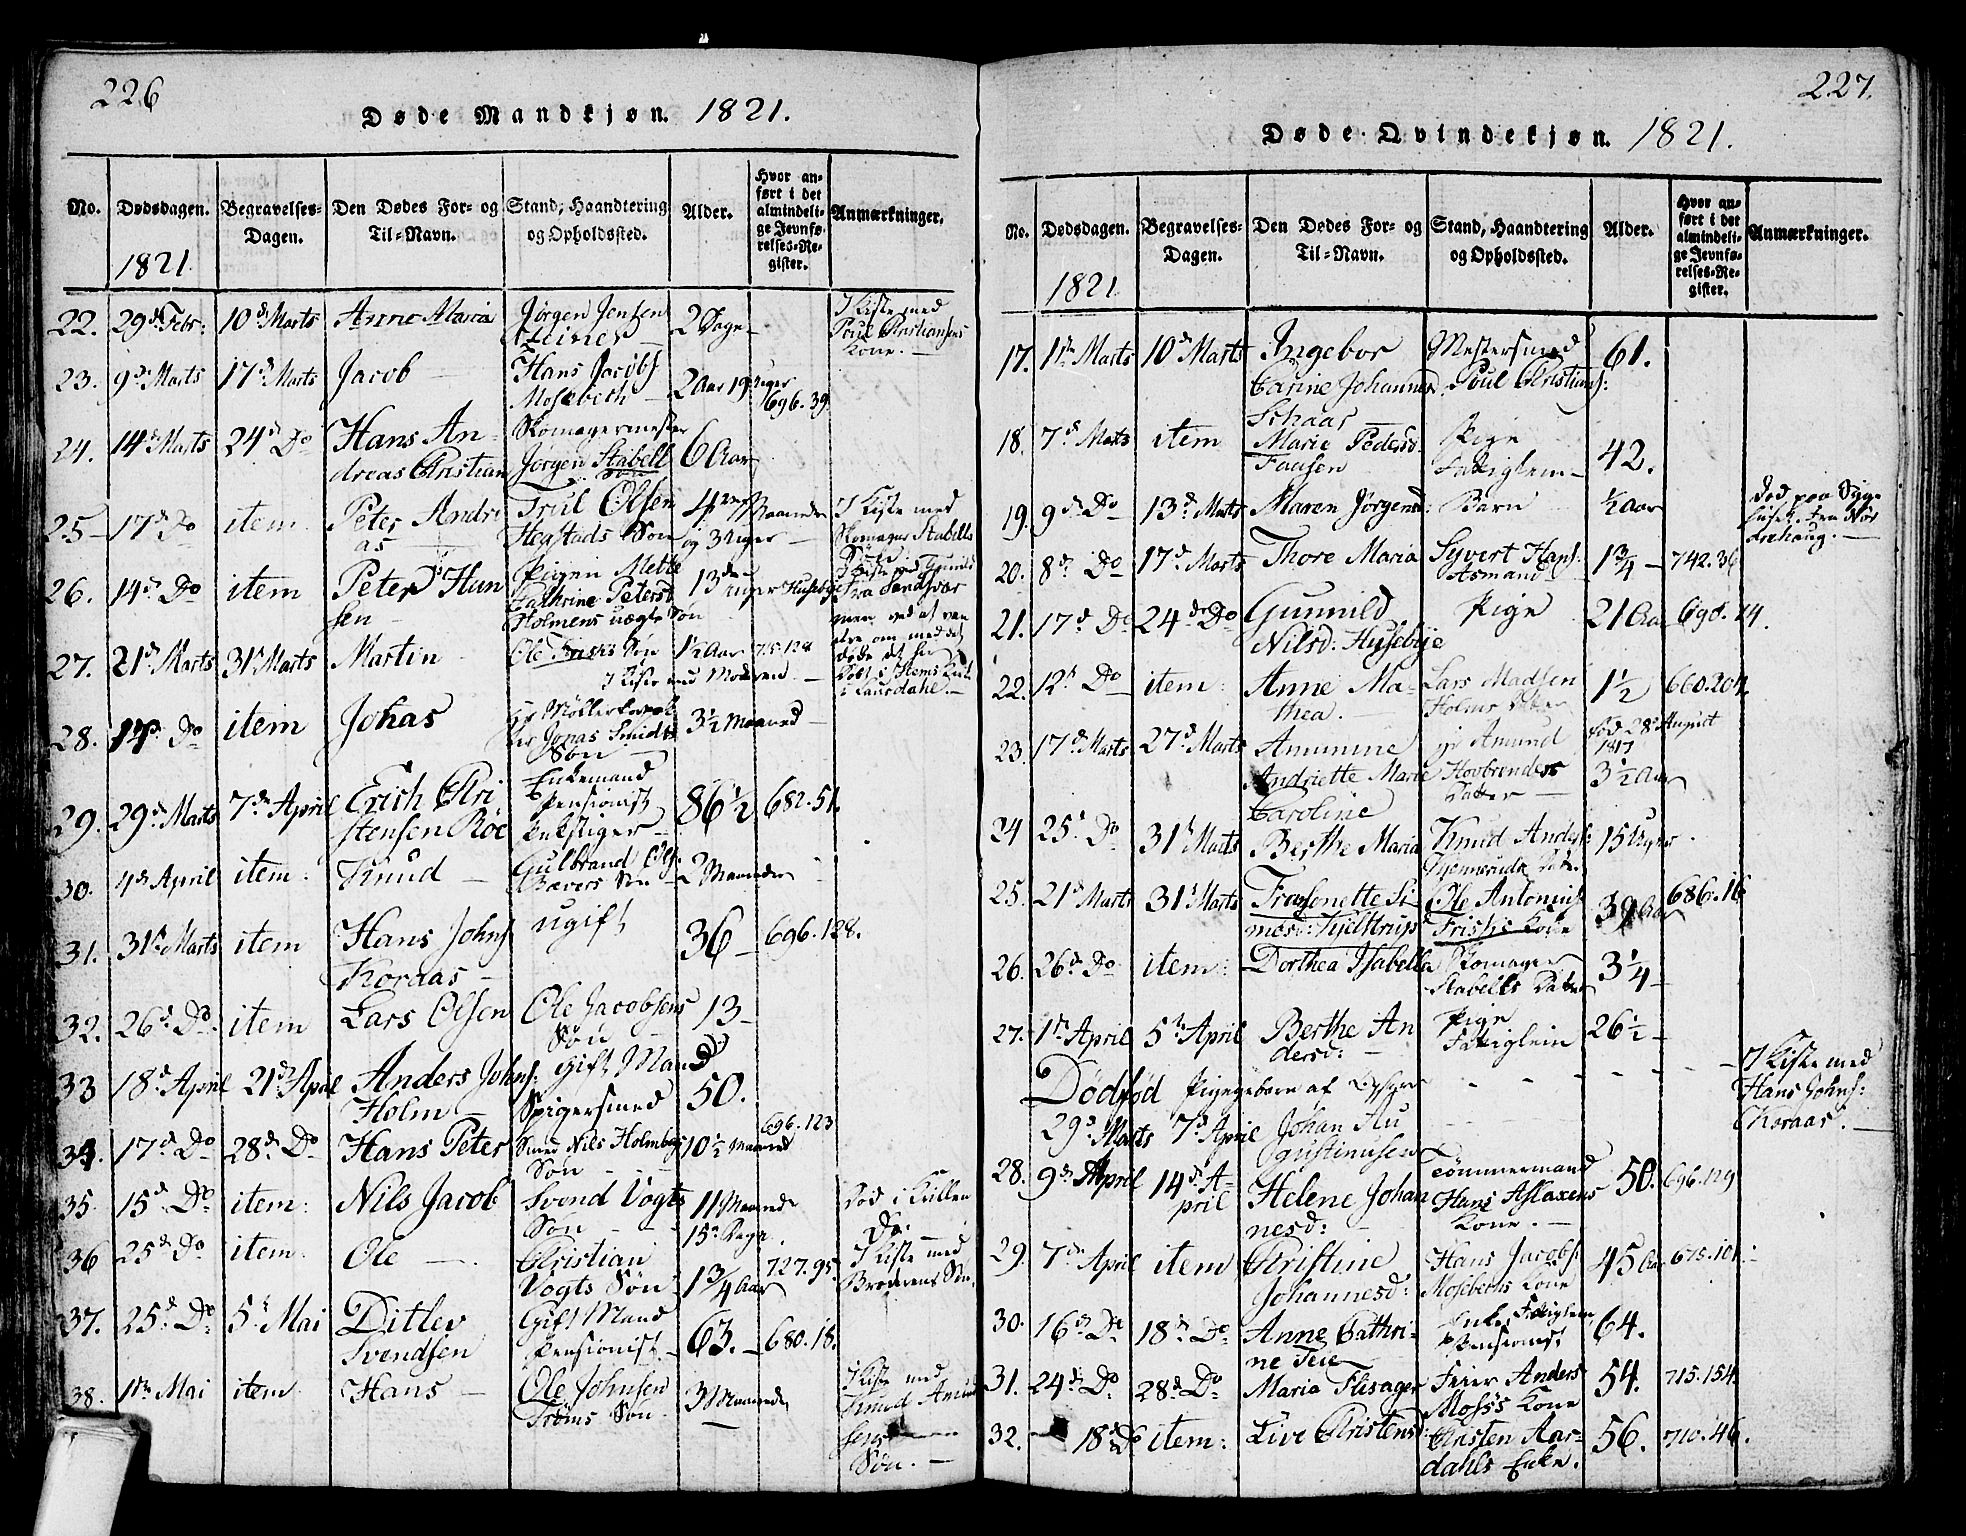 226
Døde Mandkjøn. 1821.
No.
Dødsdagen.
1821
Begravelses-
Dagen.
Den Dødes For- og
Til-Navn.
Stand, Haandtering
og Opholdssted.
Alder.
Hvor an-
ført i det
almindeli-
ge Jevnfø-
relses-Re-
gister.
Anmærkninger.
22. 29d Febr: 10d Marts Anne Maria Jørgen Jensen 2 Dage I Kiste med
Poul Christiansens
Kone.
23. 9d Marts 17d Marts Jacob Hans Jacobs
Mosebeth 2 Aar 19 Uger 696.39
24. 14d Marts 24d Do Hans An-
dreas Christian Skomagermester
Jørgen Stabell
Søn 6 Aar
25 17d Do item Peter Andre
as Trul Olsen
Hegstads Søn 4 Maaneder
og 3 Uger I Kiste med
Skomager Stabells
26. 14d Do item Peter Han
sen Pigen Mette
Cathrine Petersd
Holmens uægte Søn 13 Uger
27. 21d Marts 31t Marts Martin Ole Friskes Søn 1½ Aar 715.128
I Kiste med Moderen
28. 14d Do item Johas
Jonas Smidts
Søn 3½ Maaned
29. 29d Marts 7d April Erich Chri
stensen Röe Enkemand
Pensionist
86½ 682.51.
30. 4d April item Knud Gulbrand Ols:
Bævers Søn 2 Maaneder
31. 31t Marts item Hans Johns
Koraas ugift 36 696.128.
32. 26d Do item Lars Olsen Ole Jacobsens
Søn 13
33 18d April 21d April Anders Johns:
Holm gift Mand
Spigersmed 50.
34. 17d Do 28d Do Hans Peter Smed Nils Holmbergs
Søn 10½ Maaned 696.123
35. 15d Do item: Nils Jacob Svend Vogts
Søn 11 Maaneder
15 Dage Død i Kullen
Do.
36 25d Do item Ole Christian
Vogts Søn 1¾ Aar 727.95. I Kiste med
Broderens Søn.
37. 25d Do 5t Mai Ditlev
Svendsen Gift Mand
Pensionist 63. 680.18.
38. 1t Mai item Hans Ole Johnsen
Trøms Søn 3 Maaneder I Kiste med
Knud Amund
sens
Søn.
227.
Døde Qvindekjøn. 1821.
No.
Dødsdagen.
1821
Begravelses-
Dagen.
Den Dødes For- og
Til-Navn.
Stand, Haandtering
og Opholdssted.
Alder.
Hvor an-
ført i det
almindeli-
ge Jevnfø-
relses-Re-
gister.
Anmærkninger.
17. 1t Marts 10d Marts Ingebor
Carine Johannes
Schaar Mestersmed
Poul Christians: 61.
18. 7d Marts item Marie Pedersd
Fausen Pige
Fattiglem 42.
19. 9d Do 13d Marts Maren Jørgensd: Barn ½ Aar Død paa Syge
huset
20. 8d Do 17d Marts Thore Maria Syvert Hans:
Asmand 1¾ 742.36
21. 17d Do 24d Do Gunnild
Nilsd: Husebye Pige 21 Aar 698.14.
22. 12t Do item: Anne Ma-
thea. Lars Madsen
Holms Datter 1½ 660.204.
23. 17d Marts 27d Marts Amunine
Andriette Marie
Caroline Amund
Hovbrenders
Datter fød 28d August
1817
3½ Aar
24 25t Do 31t Marts Berthe Maria Knud Anders:
15 Uger
25. 21d Marts 31t Marts Fransonette Si
mesd: Kjeltrups Ole Antonius
Frishs Kone 39 Aar 686.16
26. 26d Do item: Dorthea Isabella Skomager
Stabells Datter 3¼
27. 1t April 5t April Berthe An
dersd: Pige
Fattiglem 26½
Dödfød Pigebarn af
29d Marts 7d April Johan Au
gustinusen I Kiste med
Hans Johns:
Koraas.
28. 9d April 14d A-
pril Helene Johan
nesd: Tømmermand
Hans Aslaxens
Kone. 50. 696.129
29. 7d April item Christine
Johannesd: Hans Jacobs
Mosebeths Kone 45 Aar 675.101.
30. 16d Do 18d Do Anne Cathri-
ne Teie Enke, Fattiglem
Pensionist 64.
31. 24d Do 28d Do Maria Flisager Feier Anders
Moss's Kone 54. 715.154
32. 18d Do item: Live Christensd: Christen Aar-
dahls Enke. 56. 710.46.